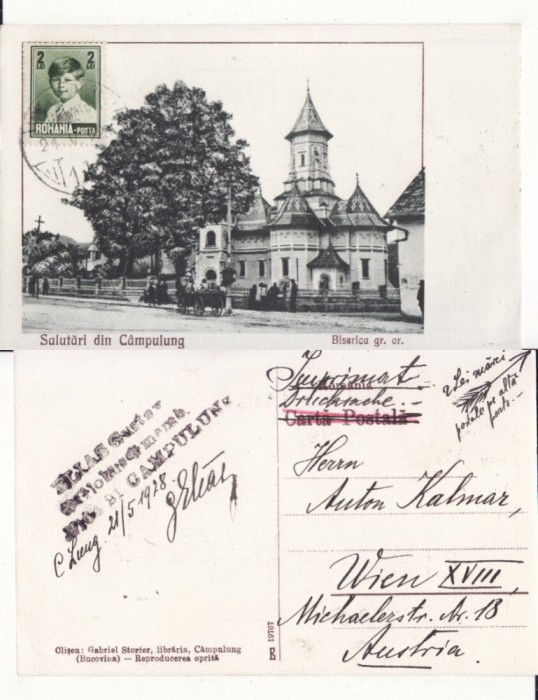 2 2
LEI LEI
ROMANIA-POSTA
Salutări din Câmpulung
Biserica gr. or.
Imprimat
România
Drucksache.-
Cartă Postală
2 Lei mărci
postale pe alta
parte.-
ELIAS Gustav
CAMPULUNG
C Lung 21/5 1928.
GElias
Herrn
Anton Kalmar,
Wien XVIII,
Michaelerstr. Nr. 18
Austria.
19767
Clișeu: Gabriel Storfer, librăria, Câmpulung
(Bucovina) — Reproducerea oprită